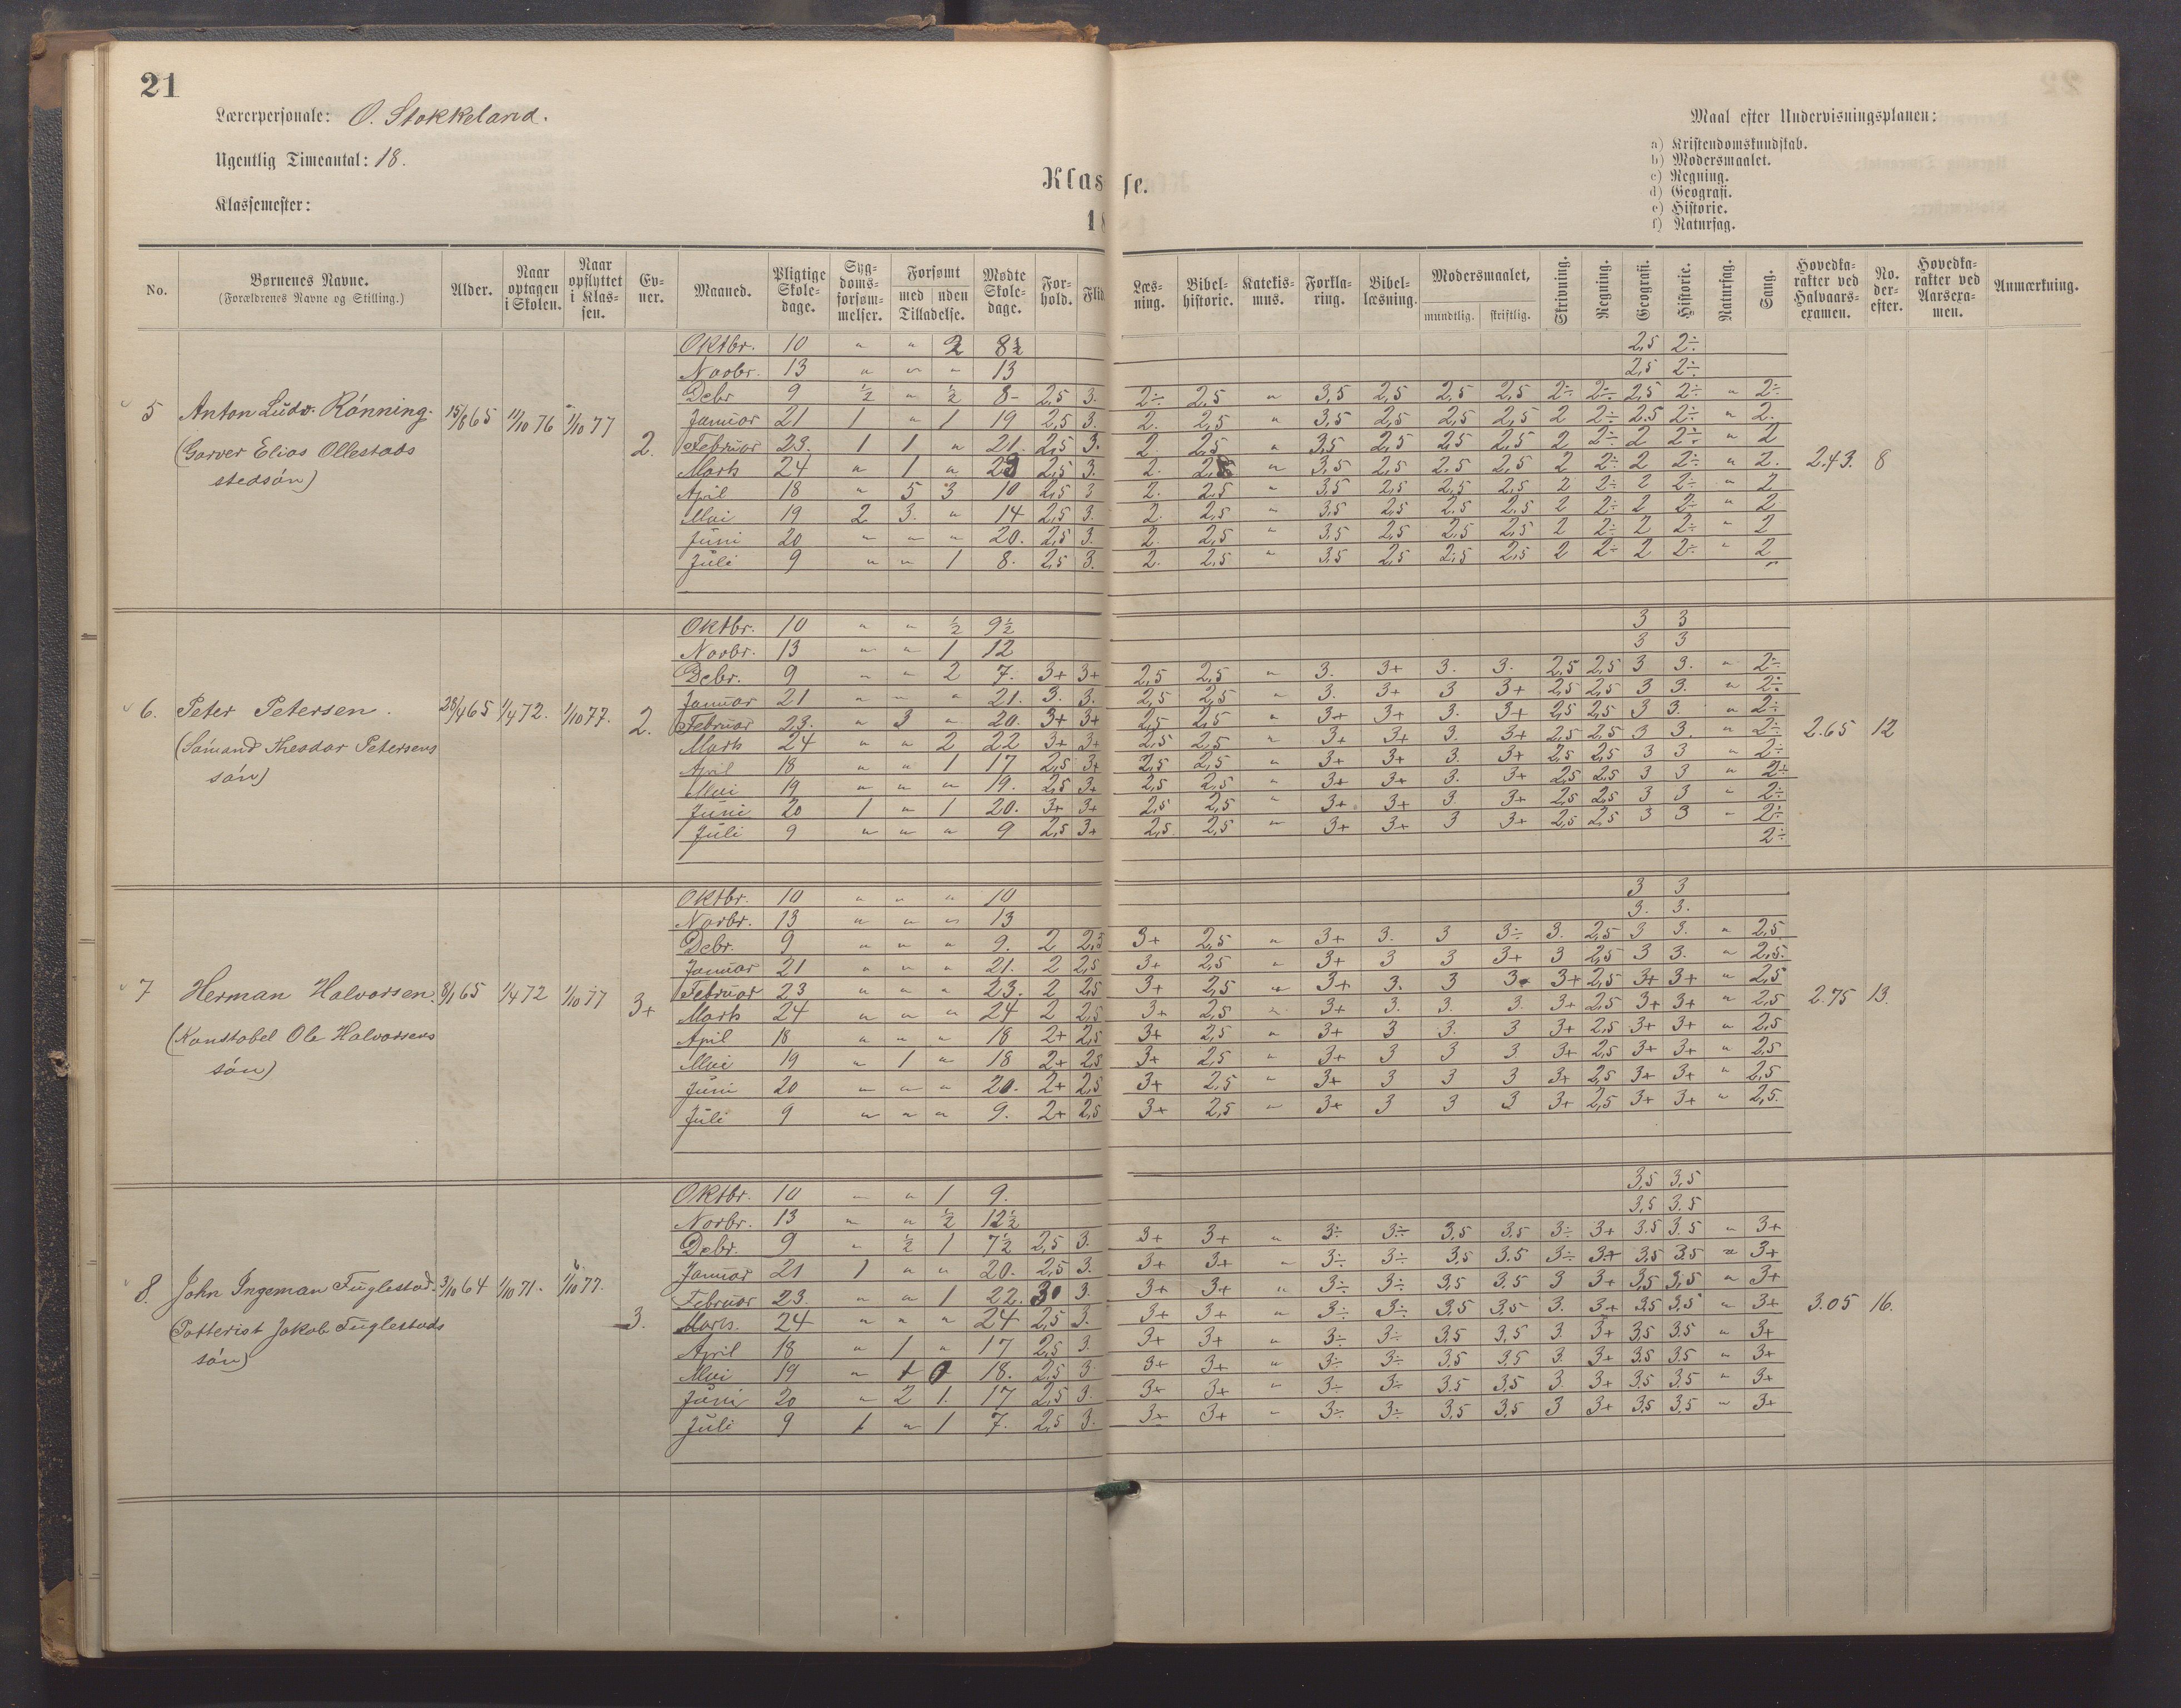 21
Lærerpersonale: O. Stokkeland.
Ugentlig Timeantal: 18.
Klassemester:
Klasse.
18
Maal efter Undervisningsplanen:
a) Kristendomskundskab.
b) Modersmaalet.
c) Regning.
d) Geografi.
e) Historie.
f) Naturfag.
No. | Børnenes Navne. (Forældrenes Navne og Stilling.) | Alder. | Naar optagen i Skolen. | Naar opflyttet i Klassen. | Evner. | Maaned. | Pligtige Skoledage. | Sygdomsforsømmelser. | Forsømt med Tilladelse. | uden Tilladelse. | Mødte Skoledage. | Forhold. | Flid. | Læsning. | Bibelhistorie. | Katekismus. | Forklaring. | Bibellæsning. | Modersmaalet, mundtlig. | skriftlig. | Skrivning. | Regning. | Geografi. | Historie. | Naturfag. | Sang. | Hovedkarakter ved Halvaarsexamen. | No. derefter. | Hovedkarakter ved Aarsexamen. | Anmærkning.
5 Anton Ludv. Rønning. 15/8 65 1/10 76 1/10 77 2. 2.43. 8
(Garver Elias Ollestads
stedsøn)
Oktbr. 10 " " 2 8½ 2,5 2÷
Novbr. 13 " " " 13 2,5 2÷
Debr 9 ½ " ½ 8- 2,5 3. 2÷ 2,5 " 3,5 2,5 2,5 2,5 2÷ 2÷ 2,5 2÷ " 2÷
Januar 21 1 " 1 19 2,5 3. 2. 2,5 " 3,5 2,5 2,5 2,5 2 2÷ 2.5 2÷ " 2.
Februar 23. 1 1 " 21. 2,5 3. 2. 2,5 " 3,5 2,5 2,5 2,5 2 2÷ 2 2÷ " 2
Marts 24 " 1 " 23 2,5 3. 2. 2,5 " 3,5 2,5 2,5 2,5 2 2÷ 2 2÷ " 2.
April 18 " 5 3 10 2,5 3 2. 2,5 " 3,5 2,5 2,5 2,5 2 2÷ 2 2÷ " 2
Mai 19 2 3. " 14 2,5 3. 2. 2,5 " 3,5 2,5 2,5 2,5 2 2÷ 2 2÷ " 2
Juni 20 " " " 20. 2,5 3. 2. 2,5 " 3,5 2,5 2,5 2,5 2 2÷ 2 2÷ " 2
Juli 9 " " 1 8. 2,5 3. 2. 2,5 " 3,5 2,5 2,5 2,5 2 2÷ 2 2÷ " 2
6. Peter Petersen. 28/4 65 1/4 72. 1/10 77. 2. 2.65 12
(Sømand Thesdor Petersens
søn)
Oktbr. 10 " " ½ 9½ 3 3
Novbr. 13 " " 1 12 3 3
Debr. 9 " " 2 7. 3+ 3+ 2,5 2,5 " 3. 3+ 3. 3. 2,5 2,5 3 3. " 2÷
Januar 21 " " " 21. 3. 3. 2,5 2,5 " 3. 3+ 3 3+ 2,5 2,5 3 3. " 2÷
Februar 23. " 3 " 20. 3+ 3+ 2,5 2,5 " 3+ 3+ 3. 3+ 2,5 2,5 3 3. " 2÷
Marts 24 " " 2 22 3+ 3+ 2,5 2,5 " 3+ 3+ 3. 3+ 2,5 2,5 3 3. " 2÷
April 18 " " 1 17 2,5 3+ 2,5 2,5 " 3+ 3+ 3. 3+ 2,5 2,5 3 3 " 2÷
Mai 19 " " " 19. 2,5 3+ 2,5 2,5 " 3+ 3+ 3. 3+ 2,5 2,5 3 3 " 2÷
Juni 20 1 " 1 20. 3+ 3+ 2,5 2,5 " 3+ 3+ 3 3+ 2,5 2,5 3 3 " 2÷
Juli 9 " " " 9 2,5 3+ 2,5 2,5 " 3+ 3+ 3 3+ 2,5 2,5 3 3 " 2÷
2÷
7 Herman Halvorsen. 8/1 65 1/4 72 1/10 77 3+ 2.75 13.
(Konstabel Ole Halvorsens
søn)
Oktbr. 10 " " " 10 3 3
Novbr. 13 " " " 13 3. 3.
Debr. 9 " " " 9. 2 2,5 3+ 2,5 " 3+ 3. 3 3÷ 3. 2,5 3 3. " 2,5
Januar 21 " " " 21. 2 2,5 3+ 2,5 " 3+ 3 3 3+ 3 2,5 3 3. " 2,5.
Februar 23 " " " 23. 2 2,5 3+ 2,5 " 3+ 3. 3 3. 3+ 2,5 3+ 3+ " 2,5
Marts 24 " " " 24 2 2,5 3+ 2,5 " 3+ 3. 3. 3. 3+ 2,5 3+ 3+ " 2,5
April 18 " " " 18 2+ 2,5 3+ 2,5 " 3+ 3 3. 3 3+ 2,5 3+ 3+ " 2,5
Mai 19 " 1 " 18 2+ 2,5 3+ 2,5 " 3+ 3 3 3 3+ 2,5 3+ 3+ " 2,5
Juni 20 " " " 20. 2+ 2,5 3+ 2,5 " 3+ 3 3 3 3+ 2,5 3+ 3+ " 2,5
Juli 9 " " " 9. 2+ 2,5 3+ 2,5 " 3+ 3 3 3 3+ 2,5 3+ 3+ " 2,5.
8. John Ingeman Fuglestad. 3/10 64 1/10 71. 1/10 77. 3. 3.05 16.
(Potterist Jakob Fuglestads
søn)
Oktbr. 10 " " 1 9. 3,5 3,5
Novbr. 13 " " ½ 12½ 3,5 3.5
Debr. 9 " ½ 1 7½ 2,5 3. 3+ 3+ " 3÷ 3÷ 3,5 3,5 3÷ 3+ 3.5 3.5 " 3+
Januar 21 1 " " 20. 2,5 3. 3+ 3+ " 3÷ 3÷ 3,5 3.5 3÷ 3+ 3,5 3.5 " 3+
Februar 23. " " 1 22. 3. 3. 3+ 3+ " 3÷ 3÷ 3,5 3.5 3 3+ 3,5 3,5 " 3+
Marts. 24 " " " 24 2,5 3. 3+ 3+ " 3÷ 3÷ 3,5 3,5 3. 3+ 3,5 3,5 " 3+
April 18 " 1 " 17 2,5 3. 3+ 3+ " 3÷ 3÷ 3,5 3,5 3. 3+ 3,5 3.5 " 3+
Mai 19 " 18. 2,5 3 3+ 3+ " 3÷ 3÷ 3,5 3,5 3. 3+ 3,5 3,5 " 3+
Juni 20 " 2 1. 17 2,5 3. 3+ 3+ " 3÷ 3÷ 3.5 3,5 3. 3+ 3,5 3.5 " 3+
Juli 9 1 " 1 7. 2,5 3. 3+ 3+ " 3÷ 3÷ 3,5 3,5 3 3+ 3,5 3,5 " 3+